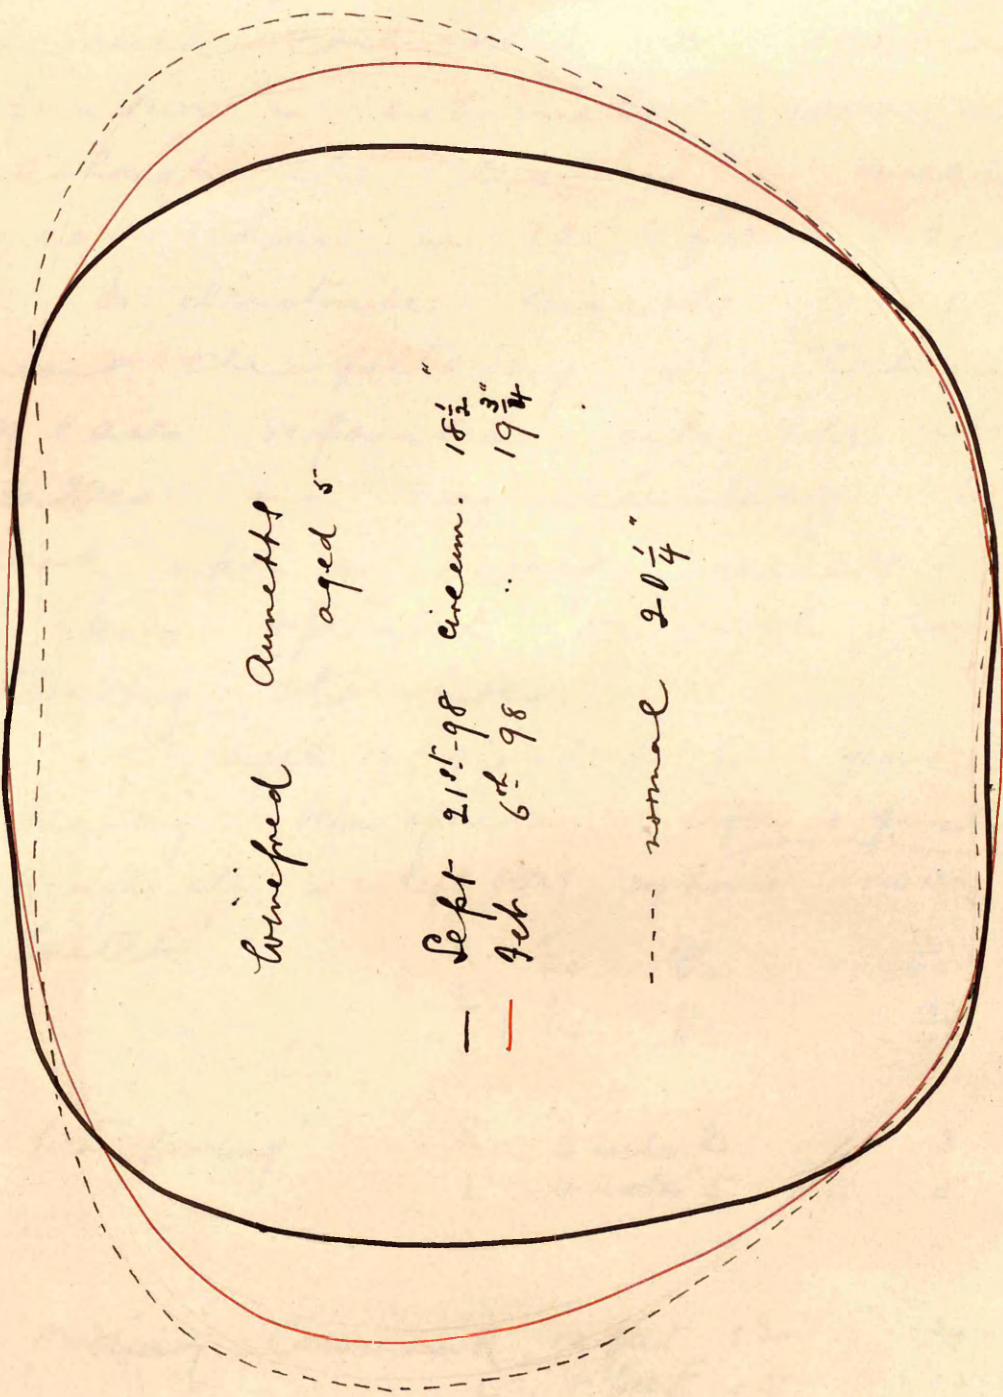 Winefred
aged 5
— Sept 21st-98 circum. 18½"
— Feb 6th 98 .. 19¾"
---- normal 20¼"